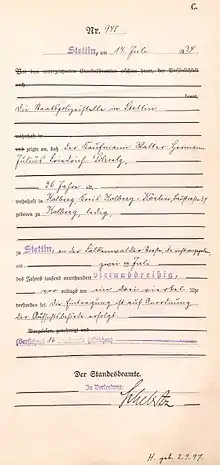 C.
Nr. 948
Stettin, am 14. Juli 1934
Vor dem unterzeichneten Standesbeamten erschien heute, der Persönlichkeit
nach
kannt,
die Staatspolizeistelle in Stettin
wohnhaft in
und zeigte an, daß der Kaufmann Walter Hermann
Julius Friedrich
36 Jahre
wohnhaft in Kolberg, Kreis Kolberg-Köslin,
geboren zu Kolberg, ledig,
zu Stettin, an der Falkenwalder
zwei Juli
des Jahres tausend neunhundert vierunddreißig,
vor mittags um drei viertel Uhr
verstorben sei. Die Eintragung ist auf Anordnung
der Aufsichtsbehörde erfolgt.
Vorgelesen, genehmigt und
Der Standesbeamte.
In Vertretung:
H. geb. 2.9.97.